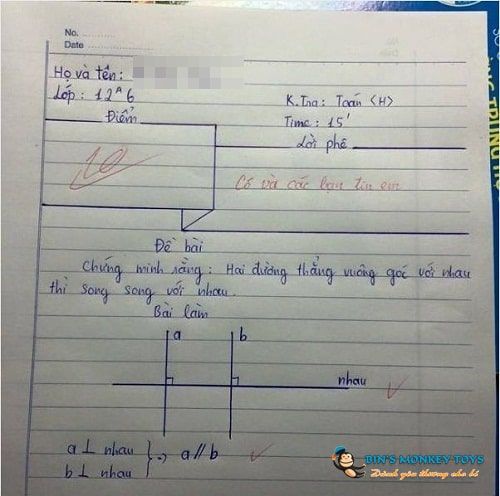 No.
Date
Họ và tên:
Lớp: 12A6
K.Tra: Toán <H>
Time: 15'
Điểm
Lời phê
10
Cô và các bạn tin em
Đề bài
Chứng minh rằng: Hai đường thẳng vuông góc với nhau
thì song song với nhau.
Bài làm
a b
nhau
a ⊥ nhau
b ⊥ nhau
} => a // b
BIN'S MONKEY-TOYS
Dành yêu thương cho bé